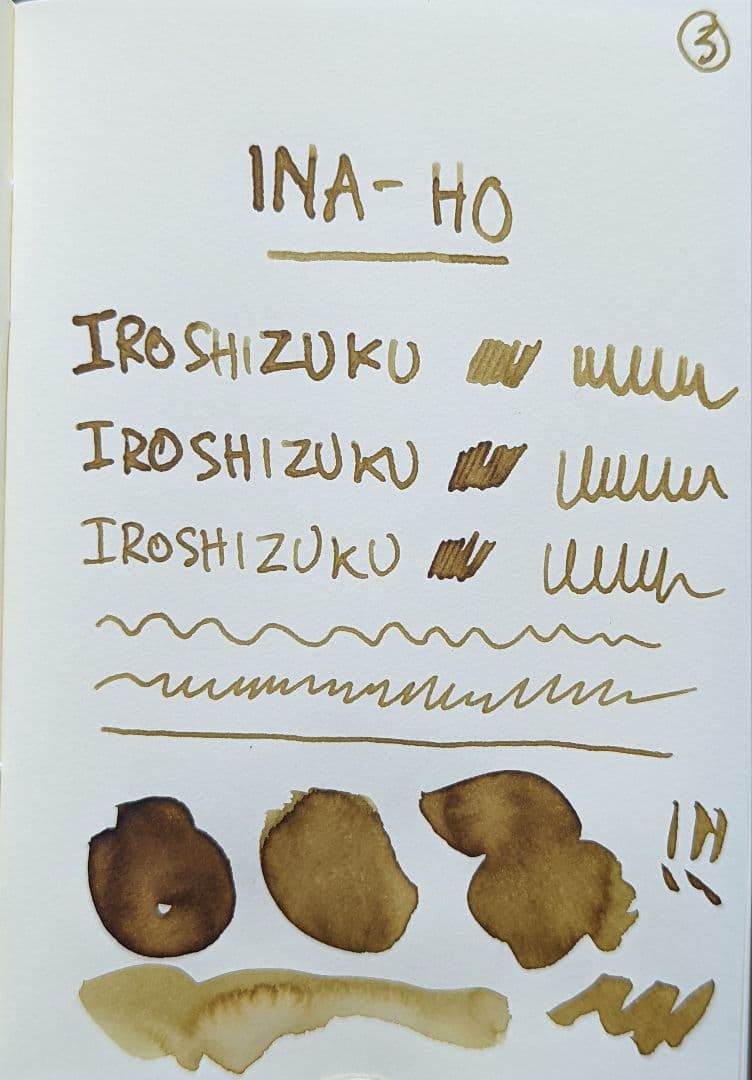 3
INA-HO
IROSHIZUKU
IROSHIZUKU
IROSHIZUKU